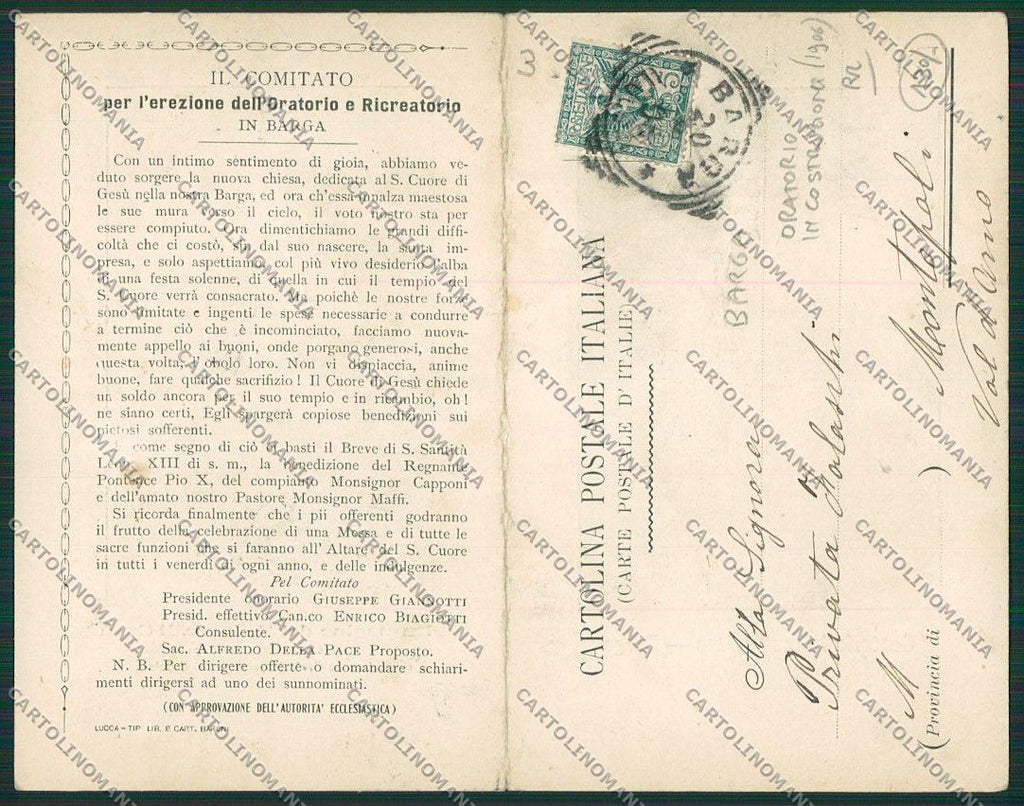 IL COMITATO
per l'erezione dell'Oratorio e Ricreatorio
IN BARGA
Con un intimo sentimento di gioia, abbiamo ve-
duto sorgere la nuova chiesa, dedicata al S. Cuore di
Gesù nella nostra Barga, ed ora ch'essa innalza maestosa
le sue mura verso il cielo, il voto nostro sta per
essere compiuto. Ora dimentichiamo le grandi diffi-
coltà che ci costò, sin dal suo nascere, la santa im-
presa, e solo aspettiamo, col più vivo desiderio l'alba
di una festa solenne, di quella in cui il tempio del
S. Cuore verrà consacrato. Ma poichè le nostre forze
sono limitate e ingenti le spese necessarie a condurre
a termine ciò che è incominciato, facciamo nuova-
mente appello ai buoni, onde porgano generosi, anche
questa volta, l'obolo loro. Non vi dispiaccia, anime
buone, fare qualche sacrifizio! Il Cuore di Gesù chiede
un soldo ancora per il suo tempio e in ricambio, oh!
ne siano certi, Egli spargerà copiose benedizioni sui
pietosi sofferenti.
come segno di ciò vi basti il Breve di S. Santità
Leone XIII di s. m., la benedizione del Regnante
Pontefice Pio X, del compianto Monsignor Capponi
e dell'amato nostro Pastore Monsignor Maffi.
Si ricorda finalmente che i pii offerenti godranno
il frutto della celebrazione di una Messa e di tutte le
sacre funzioni che si faranno all'Altare del S. Cuore
in tutti i venerdì di ogni anno, e delle indulgenze.
Pel Comitato
Presidente onorario GIUSEPPE GIANNOTTI
Presid. effettivo Can.co ENRICO BIAGIOTTI
Consulente.
Sac. ALFREDO DELLA PACE Proposto.
N. B. Per dirigere offerte o domandare schiari-
menti dirigersi ad uno dei sunnominati.
(CON APPROVAZIONE DELL'AUTORITA' ECCLESIASTICA)
LUCCA – TIP. LIB. E CART. BARONI
3
BARGA
20
CARTOLINA POSTALE ITALIANA
(CARTE POSTALE D'ITALIE)
BARGA
ORATORIO
IN COSTRUZIONE (1906)
RR
Alla Signora
Privata
Montopoli
Val d'Arno
M
(Provincia di )
CARTOLINOMANIA